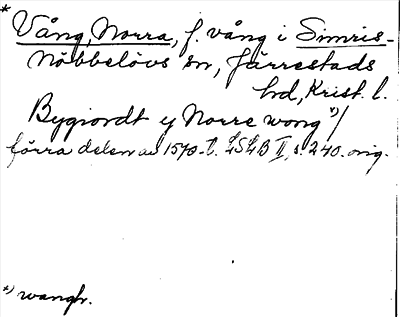 * Vång, Norra, f. vång i Simris-
Nöbbelövs sn, Järrestads
hd, Krist. l.
Bygiordt y Norre wong *)/
förra delen av 1570-t. LSLB II, s. 240. orig.
*) wangh.